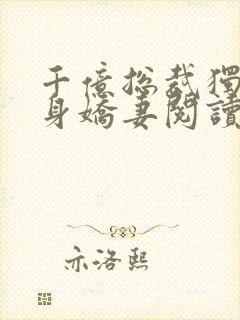 千億總裁獨
身嬌妻閱讀
亦洛熙